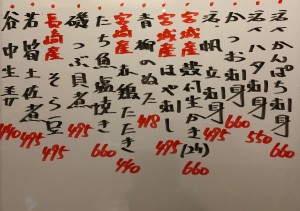 活〆かんぱち刺身 660
活〆ハタ刺身 550
かつお刺身 660
活〆帆立刺身 495
宮城産 殻付生かき(2ヶ) 660
宮城産 ほや刺し 495
青柳のぬた 418
宮崎産 お鶏たたき 440
たち魚塩焼き 660
磯つぶ貝煮 495
長崎産 そら豆 495
若筍土佐煮 495
谷中生姜 440